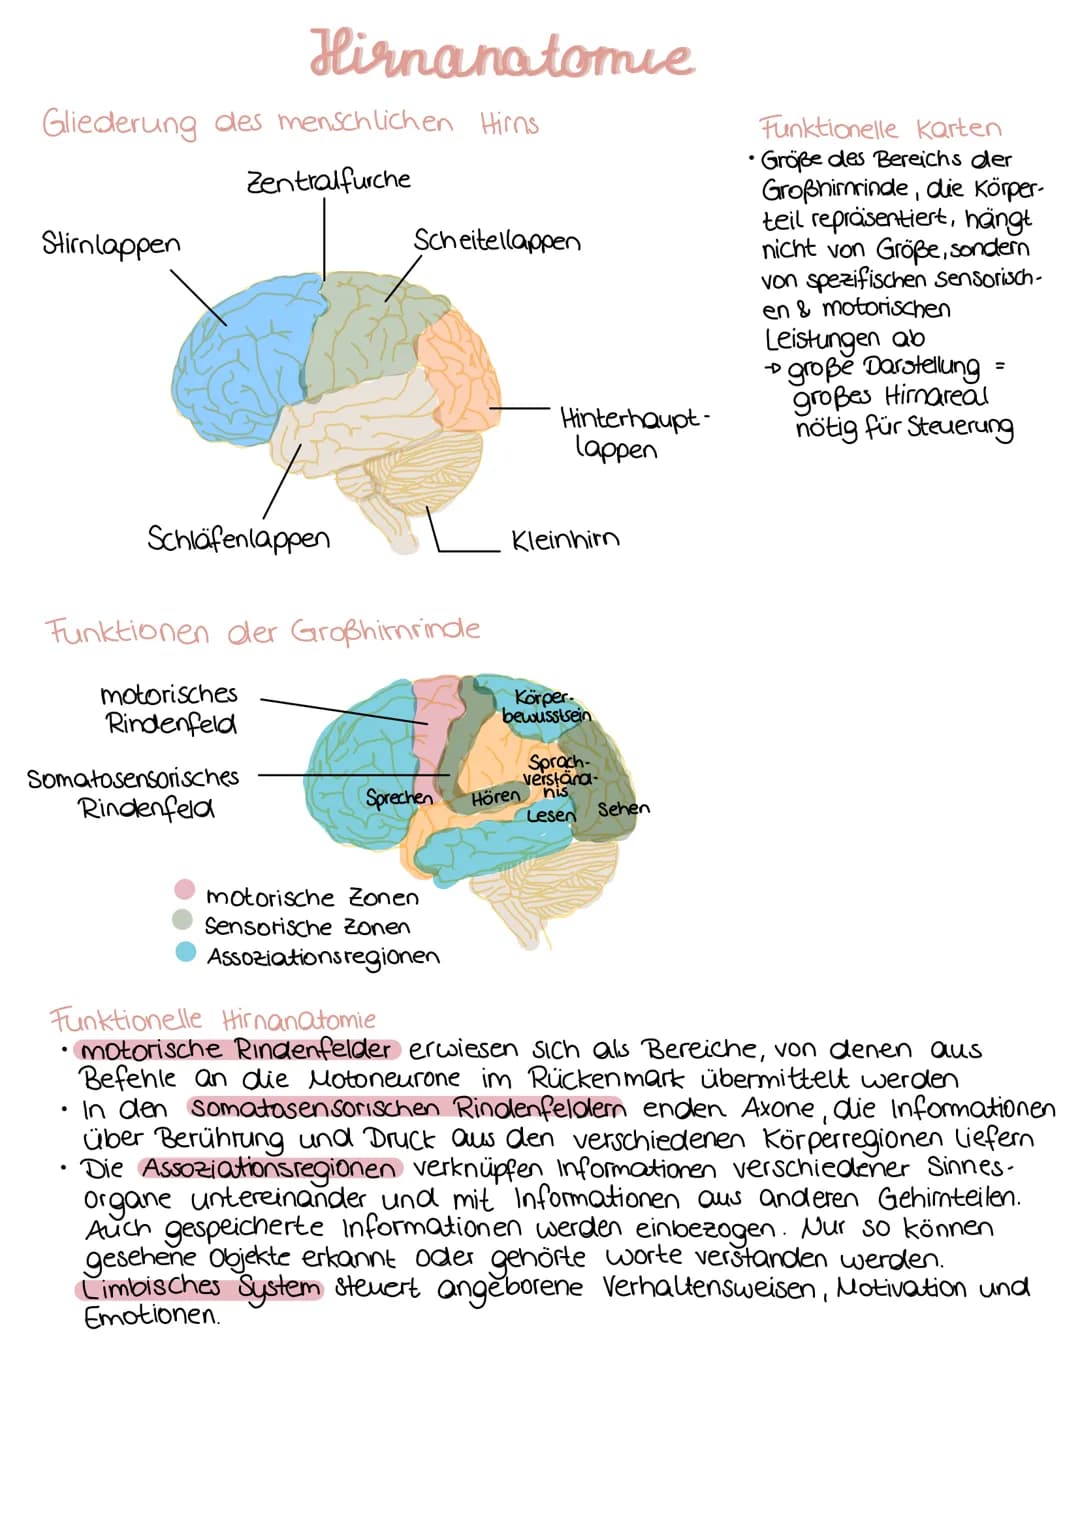 Hirnanatomie
Gliederung des menschlichen Hirns
Zentralfurche
Stirnlappen
Scheitellappen
Hinterhaupt-
lappen
Schläfenlappen
Kleinhirn
Funktionelle Karten
• Größe des Bereichs der
Großhirnrinde, die Körper-
teil repräsentiert, hängt
nicht von Größe, sondern
von spezifischen sensorisch-
en & motorischen
Leistungen ab
→ große Darstellung =
großes Hirnareal
nötig für Steuerung
Funktionen der Großhirnrinde
motorisches
Rindenfeld
Somatosensorisches
Rindenfeld
Körper-
bewusstsein
Sprach-
verständ-
nis
Sprechen
Hören
Lesen
Sehen
motorische Zonen
Sensorische Zonen
Assoziationsregionen
Funktionelle Hirnanatomie
• motorische Rindenfelder erwiesen sich als Bereiche, von denen aus
Befehle an die Motoneurone im Rückenmark übermittelt werden
• In den somatosensorischen Rindenfeldern enden Axone, die Informationen
über Berührung und Druck aus den verschiedenen Körperregionen liefern
• Die Assoziationsregionen verknüpfen Informationen verschiedener Sinnes-
organe untereinander und mit Informationen aus anderen Gehirnteilen.
Auch gespeicherte Informationen werden einbezogen. Nur so können
gesehene Objekte erkannt oder gehörte worte verstanden werden.
Limbisches System steuert angeborene Verhaltensweisen, Motivation und
Emotionen.